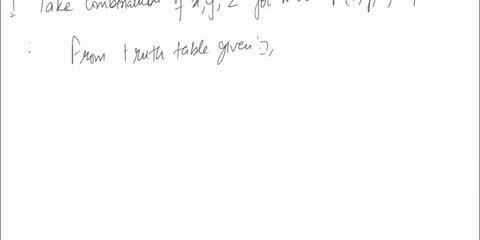 Take combination of x, y, z for
: From truth table given :,